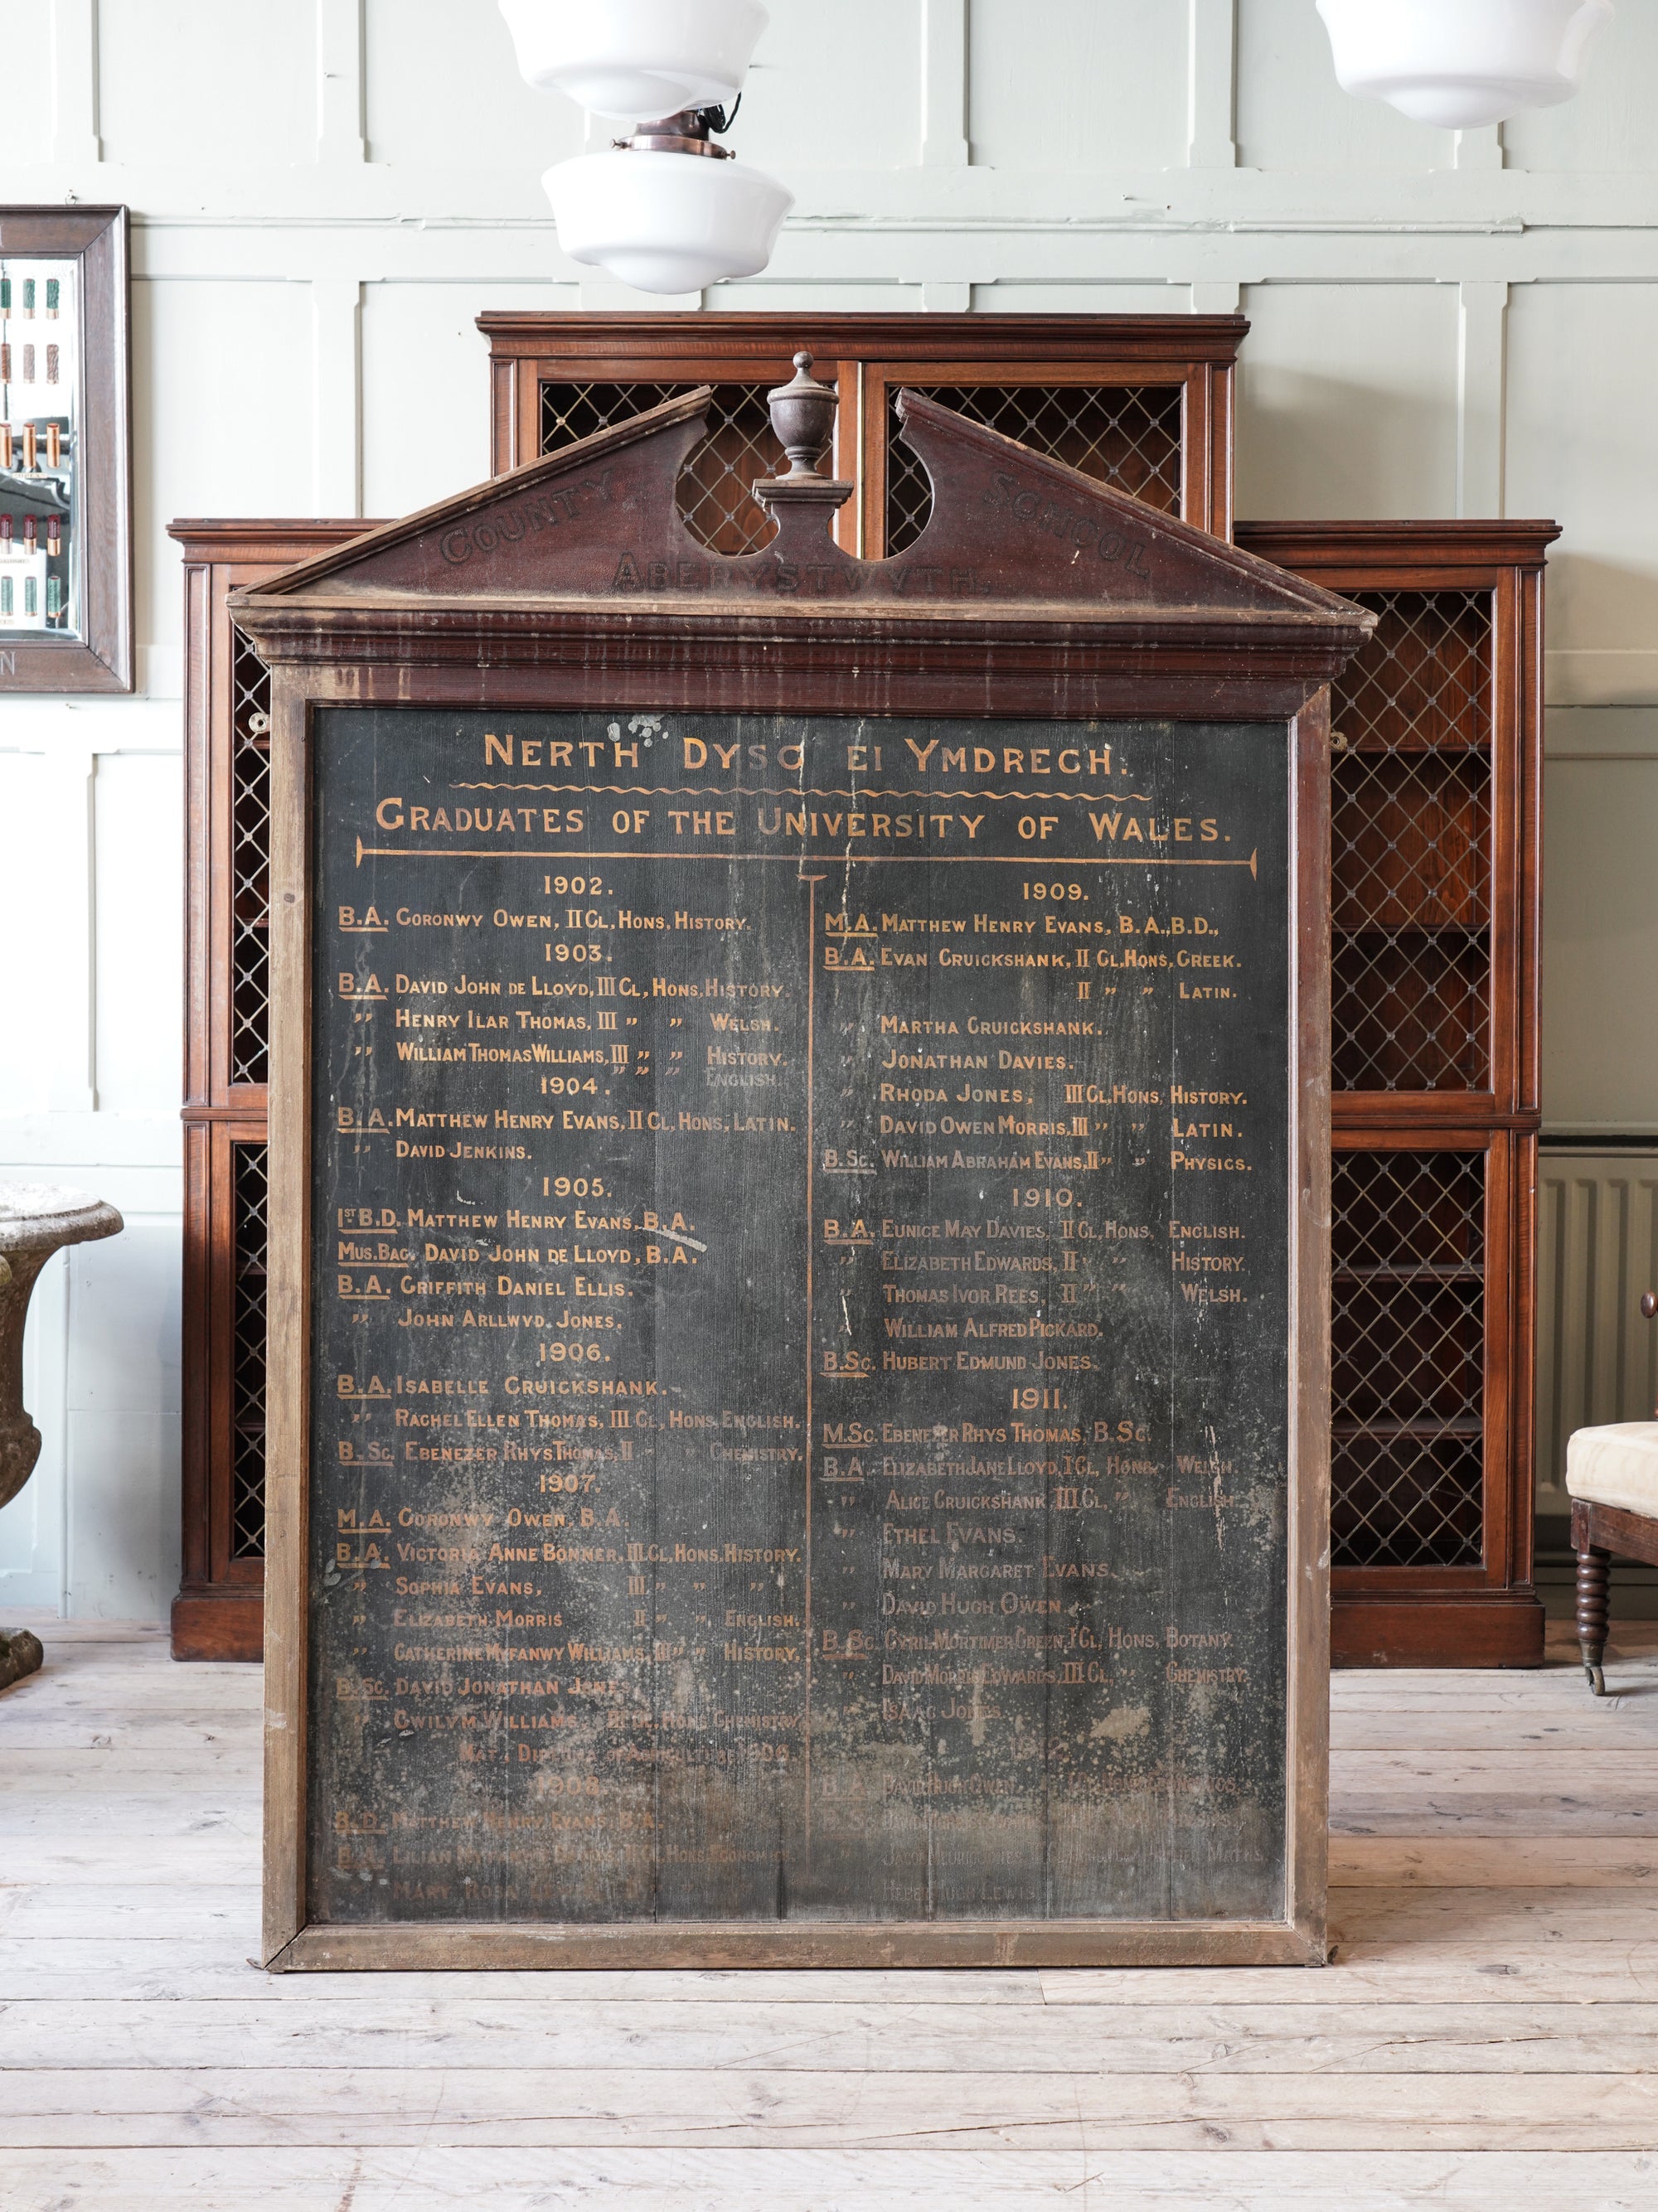 COUNTY SCHOOL
ABERYSTWYTH.
NERTH DYSG EI YMDRECH.
GRADUATES OF THE UNIVERSITY OF WALES.
1902.
B.A. GORONWY OWEN, II CL, HONS, HISTORY.
1903.
B.A. DAVID JOHN DE LLOYD, III CL, HONS, HISTORY.
" HENRY ILAR THOMAS, III " " WELSH.
" WILLIAM THOMAS WILLIAMS, III " " HISTORY.
" " " ENGLISH.
1904.
B.A. MATTHEW HENRY EVANS, II CL, HONS, LATIN.
" DAVID JENKINS.
1905.
1ST B.D. MATTHEW HENRY EVANS, B.A.
MUS.BAC. DAVID JOHN DE LLOYD, B.A.
B.A. GRIFFITH DANIEL ELLIS.
" JOHN ARLLWYD. JONES.
1906.
B.A. ISABELLE CRUICKSHANK.
" RACHEL ELLEN THOMAS, III CL, HONS, ENGLISH.
B.SC. EBENEZER RHYS THOMAS, II " " CHEMISTRY.
1907.
M.A. GORONWY OWEN, B.A.
B.A. VICTORIA ANNE BONNER, III CL, HONS, HISTORY.
" SOPHIA EVANS, III " " "
" ELIZABETH MORRIS II " " ENGLISH.
" CATHERINE MYFANWY WILLIAMS, III " " HISTORY.
B.SC. DAVID JONATHAN JONES
" GWILYM WILLIAMS, CL, HONS, CHEMISTRY.
NAT. AGRICULTURE
1908.
B.D. MATTHEW HENRY EVANS, B.A.
B.A. LILIAN CL, HONS, ECONOMICS.
MARY ROSA
1909.
M.A. MATTHEW HENRY EVANS, B.A., B.D.,
B.A. EVAN CRUICKSHANK, II CL, HONS, GREEK.
II " " LATIN.
" MARTHA CRUICKSHANK.
" JONATHAN DAVIES.
" RHODA JONES, III CL, HONS, HISTORY.
" DAVID OWEN MORRIS, III " " LATIN.
B.SC. WILLIAM ABRAHAM EVANS, II " " PHYSICS.
1910.
B.A. EUNICE MAY DAVIES, II CL, HONS, ENGLISH.
" ELIZABETH EDWARDS, II " " HISTORY.
" THOMAS IVOR REES, II " " WELSH.
" WILLIAM ALFRED PICKARD.
B.SC. HUBERT EDMUND JONES.
1911.
M.SC. EBENEZER RHYS THOMAS, B.SC.
B.A. ELIZABETH JANE LLOYD, I CL, HONS, WELSH.
" ALICE CRUICKSHANK III CL, " ENGLISH.
" ETHEL EVANS.
" MARY MARGARET EVANS.
" DAVID HUGH OWEN.
B.SC. CYRIL MORTIMER GREEN, I CL, HONS, BOTANY.
" DAVID MORRIS EDWARDS, III CL, " CHEMISTRY.
" ISAAC JONES.
B.A. DAVID HUGH OWEN HONS, ECONOMICS.
B.SC.
" JACOB JONES MATHS.
HUGH LEWIS